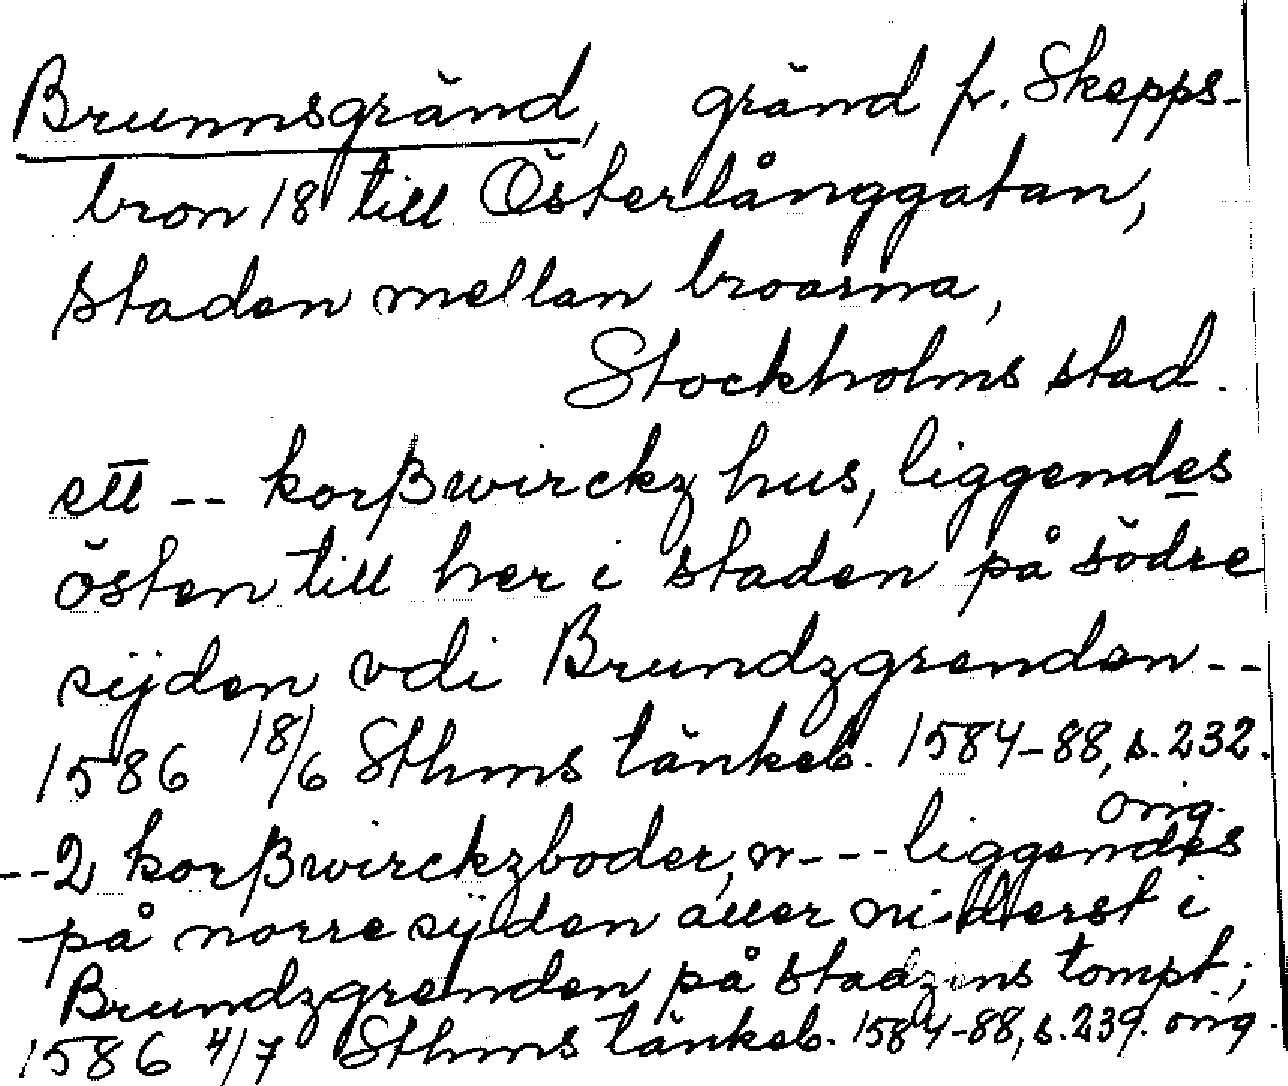 Brunnsgränd, gränd fr. Skepps-
bron 18 till Österlånggatan,
staden mellan broarna,
Stockholms stad.
ett -- korßwirckz hus, liggendes
östen till her i staden på södre
sijden vdi Brundzgrenden --
1586 18/6 Sthms tänkeb. 1584-88, s. 232.
orig.
-- 2 korßwirckzboder, n --- liggendes
på norre sijden aller niderst i
Brundzgrenden på stadzens tompt;
1586 4/7 Sthms tänkeb. 1584-88, s. 239. orig.